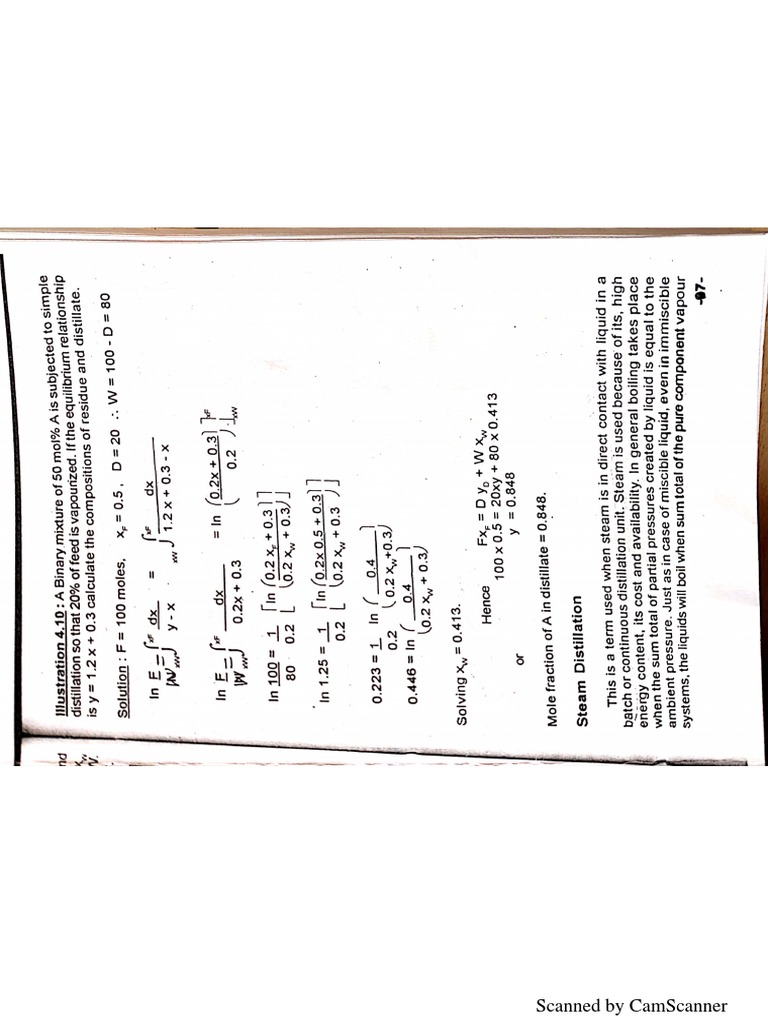 nd
x_w
V.
Illustration 4.10 : A Binary mixture of 50 mol% A is subjected to simple
distillation so that 20% of feed is vapourized. If the equilibrium relationship
is y = 1.2 x + 0.3 calculate the compositions of residue and distillate.
Solution : F = 100 moles, x_F = 0.5 , D = 20 ∴ W = 100 - D = 80
ln F/W = ∫_xw^xF dx/(y - x) = ∫_xw^xF dx/(1.2 x + 0.3 - x)
ln F/W = ∫_xw^xF dx/(0.2x + 0.3) = ln [(0.2x + 0.3)/0.2]_xw^xF
ln 100/80 = 1/0.2 [ln ((0.2 x_F + 0.3)/(0.2 x_w + 0.3))]
ln 1.25 = 1/0.2 [ln ((0.2x 0.5 + 0.3)/(0.2 x_w + 0.3))]
0.223 = 1/0.2 ln (0.4/(0.2 x_w+0.3))
0.446 = ln (0.4/(0.2 x_w + 0.3))
Solving x_w = 0.413.
Hence Fx_F = D y_D + W x_w
100 x 0.5 = 20xy + 80 x 0.413
or y = 0.848
Mole fraction of A in distillate = 0.848.
Steam Distillation
This is a term used when steam is in direct contact with liquid in a
batch or continuous distillation unit. Steam is used because of its, high
energy content, its cost and availability. In general boiling takes place
when the sum total of partial pressures created by liquid is equal to the
ambient pressure. Just as in case of miscible liquid, even in immiscible
systems, the liquids will boil when sum total of the pure component vapour
-97-
Scanned by CamScanner